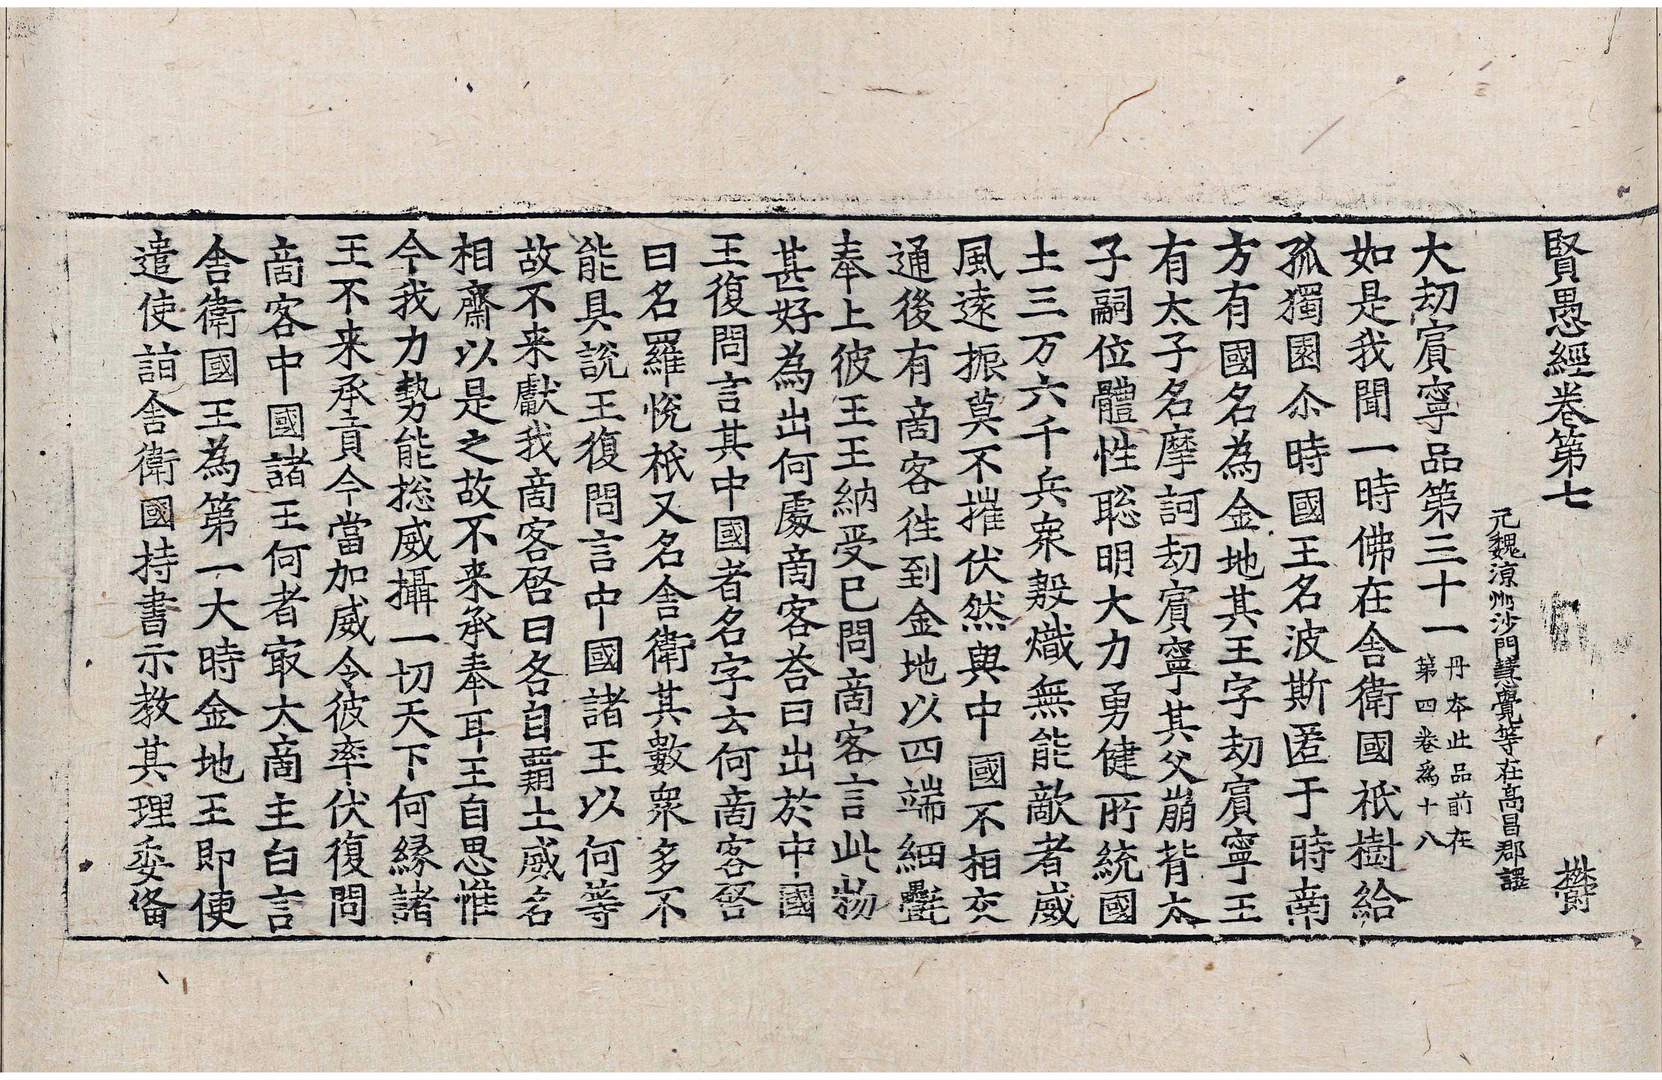 賢愚經卷第七 欝
元魏涼州沙門慧覺等在高昌郡譯
大劫賓寧品第三十一 丹本此品前在第四卷為十八
如是我聞一時佛在舍衛國祇樹給
孤獨園尒時國王名波斯匿于時南
方有國名為金地其王字劫賓寧王
有太子名摩訶劫賓寧其父崩背太
子嗣位體性聡明大力勇健所統國
土三万六千兵衆殷熾無能敵者威
風遠振莫不摧伏然與中國不相交
通後有啇客往到金地以四端細㲲
奉上彼王王納受已問啇客言此物
甚好為出何處啇客荅曰出於中國
王復問言其中國者名字云何啇客啓
曰名羅悅祇又名舍衛其數衆多不
能具說王復問言中國諸王以何等
故不来獻我啇客啓曰各自覇土威名
相齋以是之故不来承奉耳王自思惟
今我力勢能揔威攝一切天下何緣諸
王不来承貢今當加威令彼率伏復問
啇客中國諸王何者㝡大啇主白言
舍衛國王為第一大時金地王即便
遣使詣舍衛國持書示教其理委俻